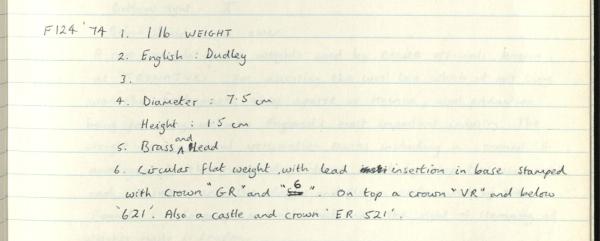 F124 '74 1. 1 lb WEIGHT
2. English : Dudley
3.
4. Diameter : 7.5 cm
Height : 1.5 cm
5. Brass and lead
6. Circular flat weight, with lead insertion in base stamped
with crown "GR" and " 6 ". On top a crown "VR" and below
'621'. Also a castle and crown 'ER 521'.